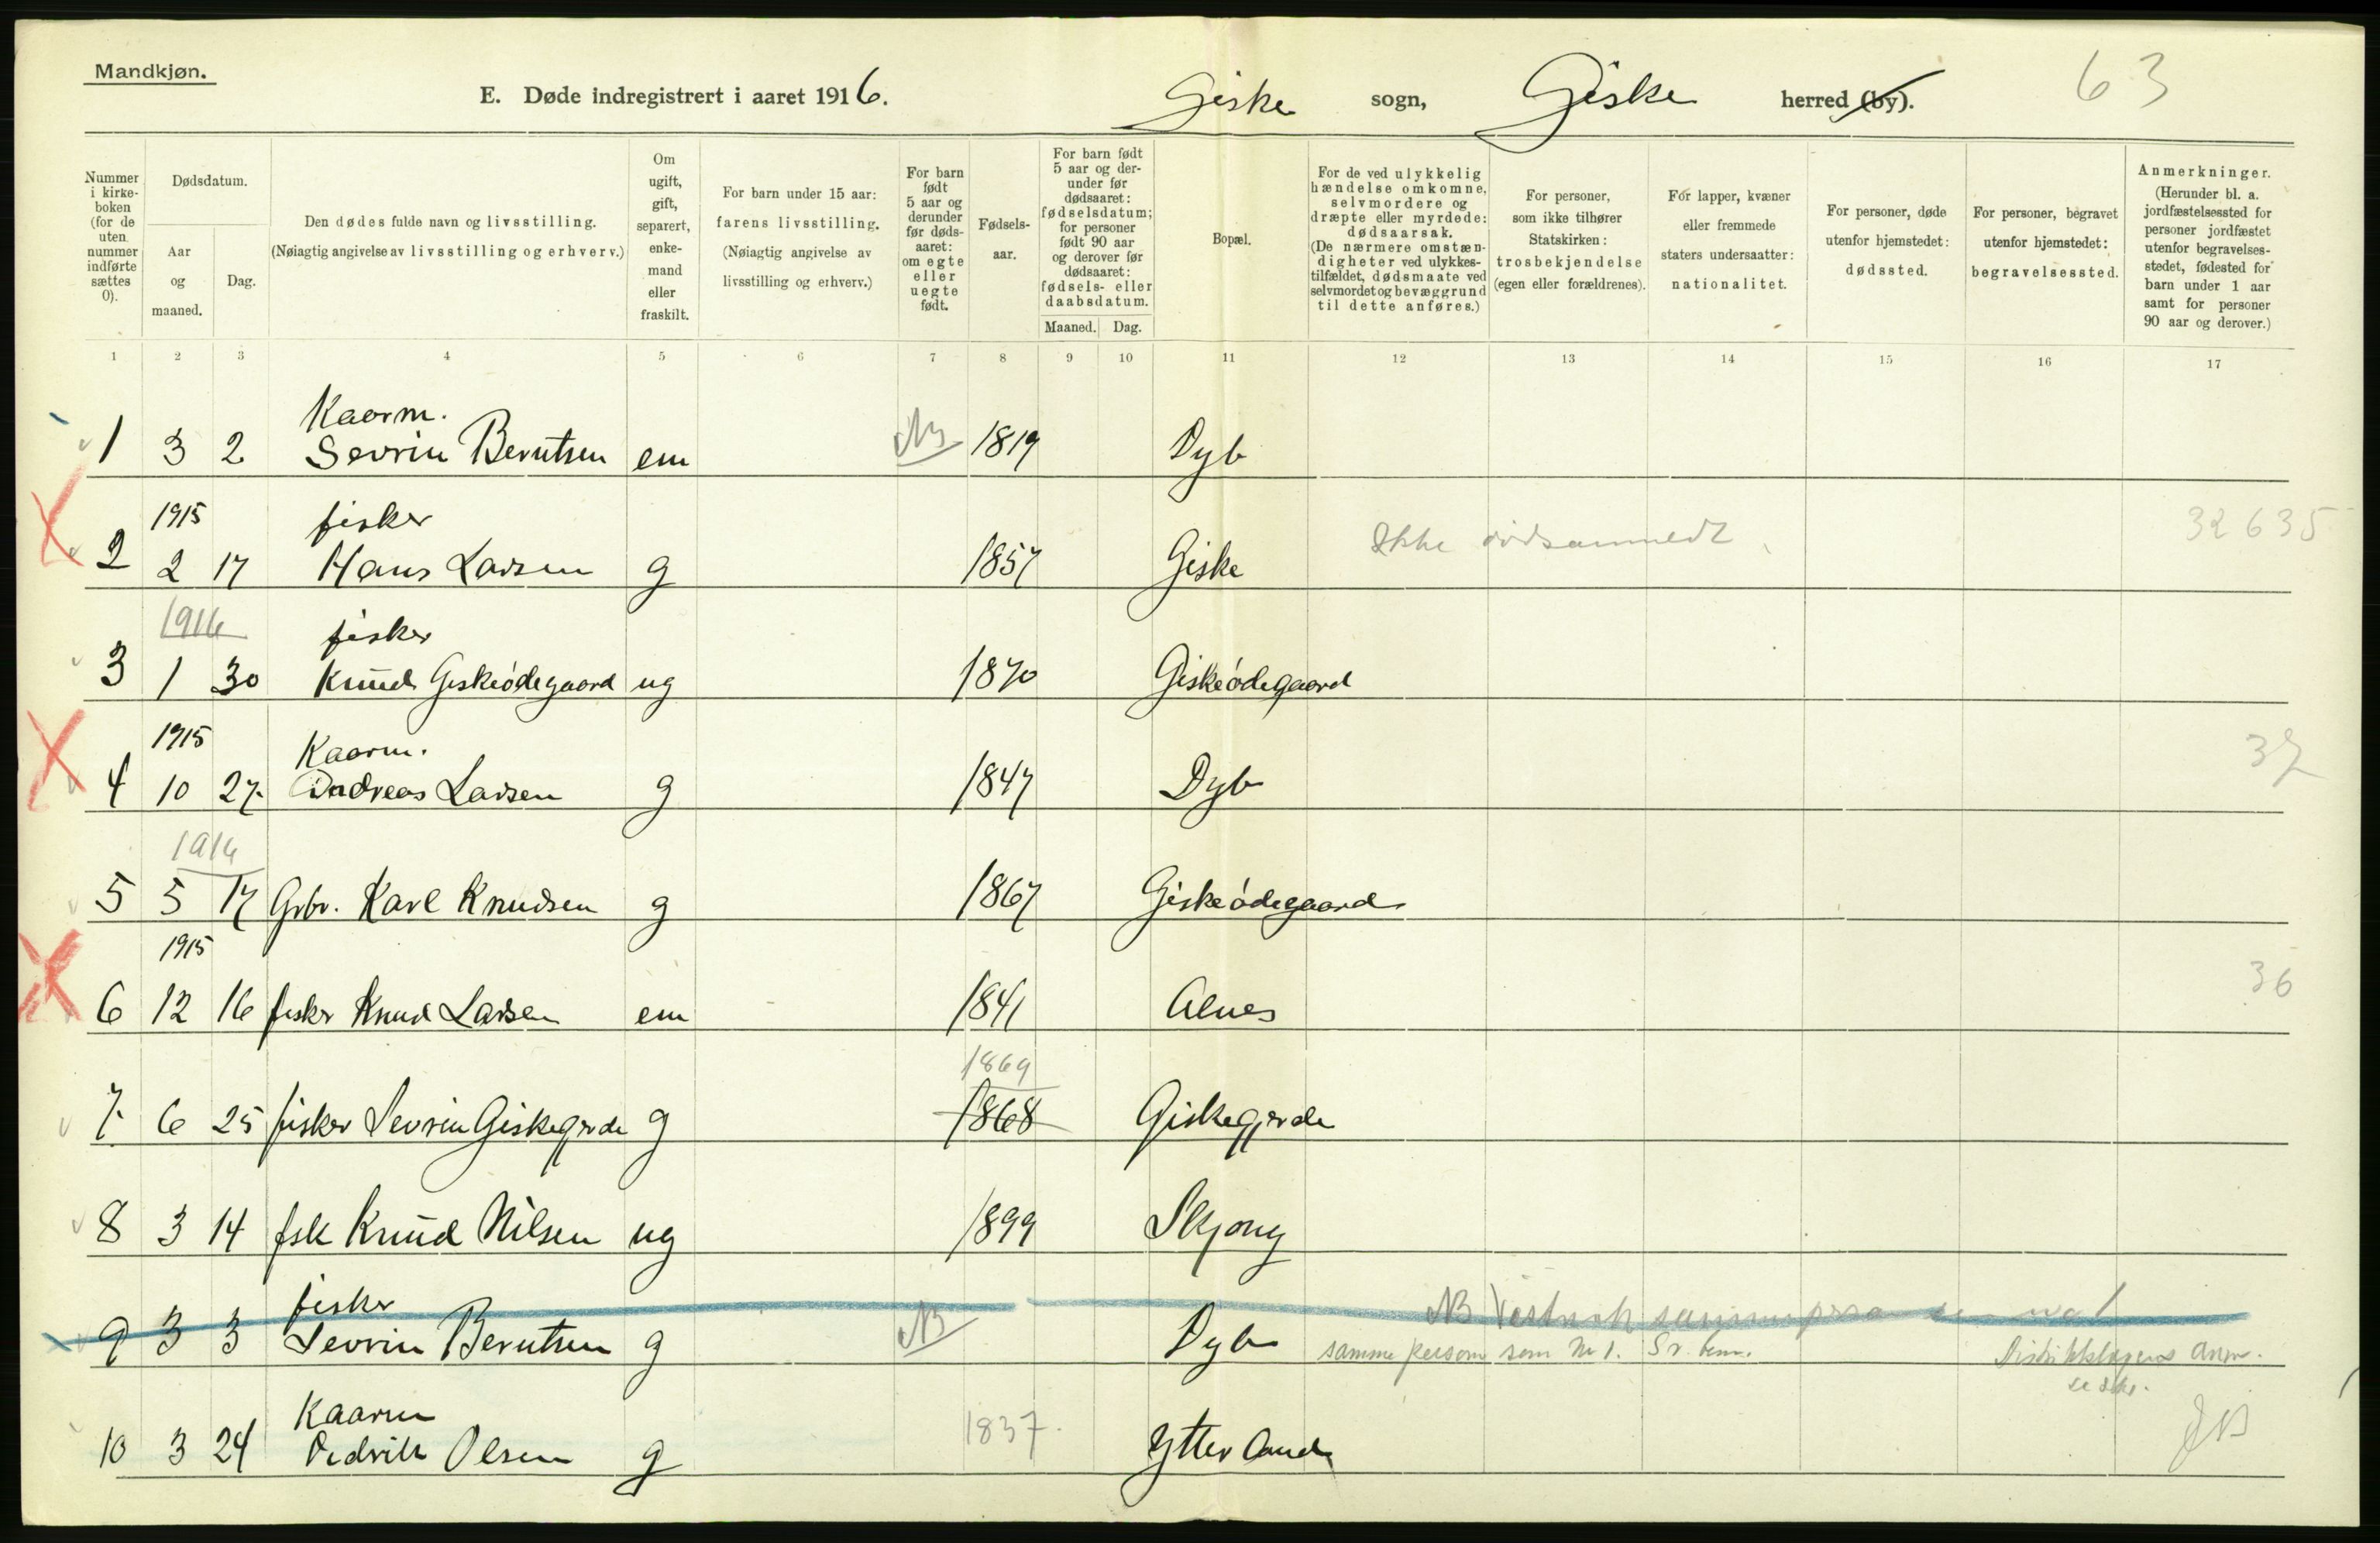 Mandkjøn.
E. Døde indregistrert i aaret 1916. Giske sogn, Giske herred (by). 63
Nummer i kirke-boken (for de uten nummer indførte sættes 0).
Dødsdatum.
Aar og maaned.
Dag.
Den dødes fulde navn og livsstilling.
(Nøiagtig angivelse av livsstilling og erhverv.)
Om ugift, gift, separert, enke-mand eller fraskilt.
For barn under 15 aar:
farens livsstilling.
(Nøiagtig angivelse av livsstilling og erhverv.)
For barn født 5 aar og derunder før døds-aaret: om egte eller uegte født.
Fødsels-aar.
For barn født 5 aar og der-under før dødsaaret: fødselsdatum; for personer født 90 aar og derover før dødsaaret: fødsels- eller daabsdatum.
Maaned. Dag.
Bopæl.
For de ved ulykkelig hændelse omkomne, selvmordere og dræpte eller myrdede: dødsaarsak. (De nærmere omstæn-digheter ved ulykkes-tilfældet, dødsmaate ved selvmordet og bevæggrund til dette anføres.)
For personer, som ikke tilhører Statskirken: trosbekjendelse (egen eller forældrenes).
For lapper, kvæner eller fremmede staters undersaatter: nationalitet.
For personer, døde utenfor hjemstedet: dødssted.
For personer, begravet utenfor hjemstedet: begravelsessted.
Anmerkninger.
(Herunder bl. a. jordfæstelsessted for personer jordfæstet utenfor begravelses-stedet, fødested for barn under 1 aar samt for personer 90 aar og derover.)
1 2 3 4 5 6 7 8 9 10 11 12 13 14 15 16 17
Kaarm.
1 3 2 Sevrin Berntsen em NB 1819 Dyb
1915 fisker
2 2 17 Hans Larsen g 1857 Giske Ikke dødsanmeldt 32635
1916 fisker
3 1 30 Knud Giskeødegaard ug 1870 Giskeødegaard
1915 Kaarm.
4 10 27. Andreas Larsen g 1847 Dyb 37
1916
5 5 17 Grbr. Karl Knudsen g 1867 Giskeødegaard
1915
6 12 16 fisker Knud Larsen em 1841 Alnes 36
1869
7. 6 25 fisker Sevrin Giskegjerde g 1868 Giskegjerde
8 3 14 fsk Knud Nilsen ug 1899 Skjong
fisker NB Vistnok samme person som no 1
9 3 3 Sevrin Berntsen g NB Dyb samme person som Nr 1.
Kaarm
10 3 24 Didrik Olsen g 1837. Ytterland